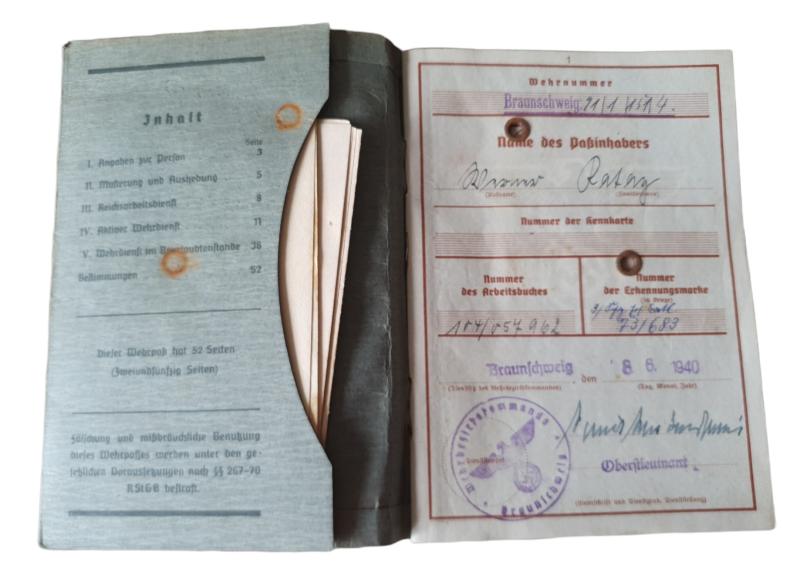 Inhalt
Seite
I. Angaben zur Person 3
II. Musterung und Aushebung 5
III. Reichsarbeitsdienst 8
IV. Aktiver Wehrdienst 11
V. Wehrdienst im Beurlaubtenstande 36
Bestimmungen 52
Dieser Wehrpaß hat 52 Seiten
(Zweiundfünfzig Seiten)
Fälschung und mißbräuchliche Benutzung
dieses Wehrpasses werden unter den ge-
setzlichen Voraussetzungen nach §§ 267-70
RStGB bestraft.
1
Wehrnummer
Braunschweig
Name des Paßinhabers
Werner Rataj
(Vorname) (Familienname)
Nummer der Kennkarte
Nummer
des Arbeitsbuches
Nummer
der Erkennungsmarke
(im Kriege)
104/057962
73/683
Braunschweig den 8. 6. 1940
(Tag, Monat, Jahr)
Wehrbezirkskommando
Braunschweig
Oberstleutnant
(Unterschrift und Dienstgrad, Dienststellung)